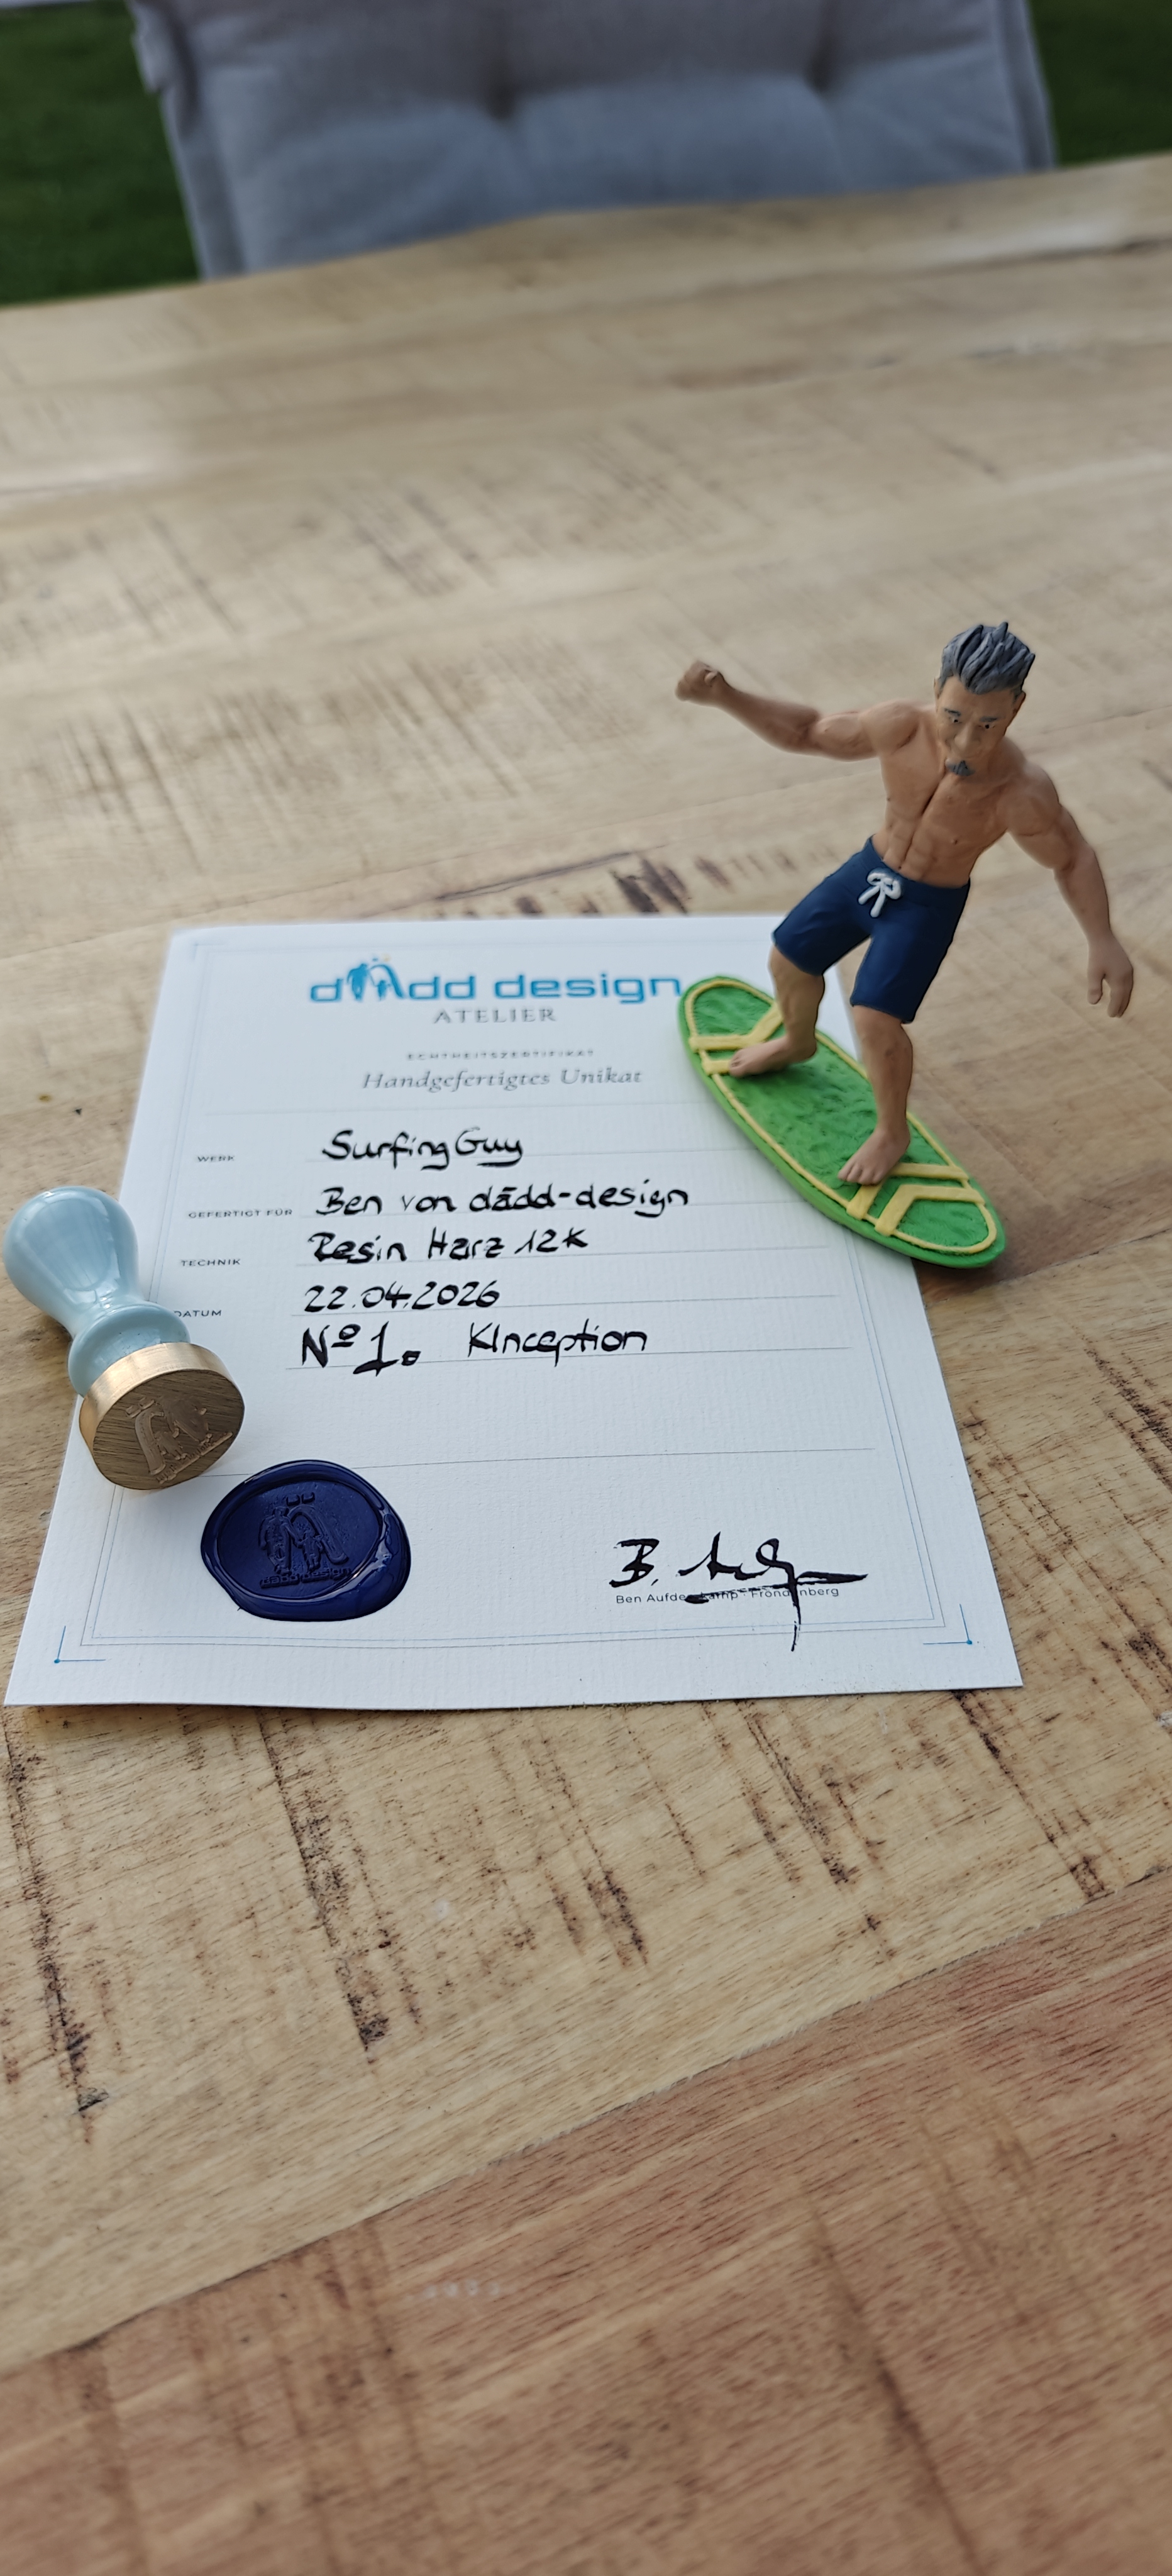 dädd design
ATELIER
ECHTHEITSZERTIFIKAT
Handgefertigtes Unikat
WERK Surfing Guy
GEFERTIGT FÜR Ben von dädd-design
TECHNIK Resin Harz 12K
DATUM 22.04.2026
Nº 1. KInception
B.
Ben
dädd design